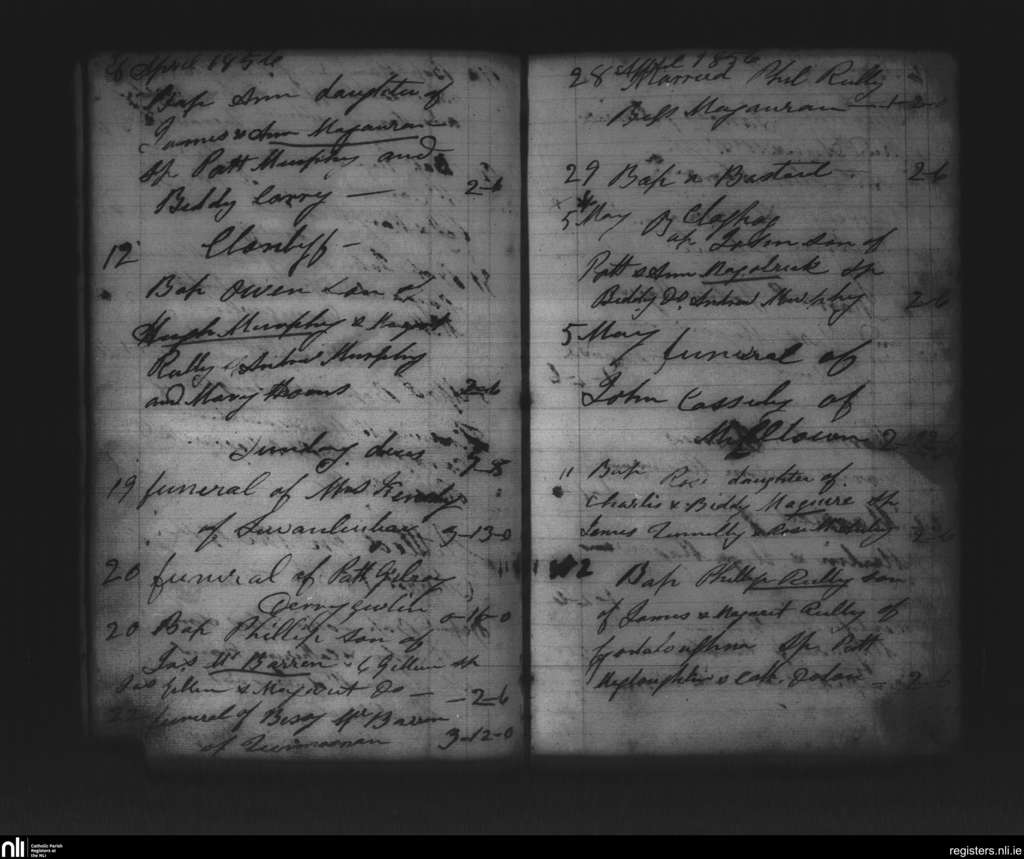 6 April 1856
Bap Ann daughter of
James & Ann Magauran
Sp Patt Murphy and
Biddy Corry — 2-6
12 Clontiff -
Bap Owen son of
Hugh Murphy & Margt
Reilly Andrew Murphy
and Mary 2-6
Sunday dues 7-8
19 funeral of Mrs
of 3-13-0
20 funeral of Patt Gilroy
0-16-0
20 Bap Phillip son of
Jas Mc Barren & C Gillen Sp
Jas Gillen & Margaret Do — 2-6
22 funeral of Bessy Mc Barren
of 3-12-0
28 April 1856
Married Phil Reilly
Bess Magauran 1-2-
29 Bap a Bastard 2-6
5 May
Bap John son of
Patt & Ann Magolrick Sp
Biddy Do. Andrew Murphy 2-6
5 May funeral of
John Cassely of
Milltown 2-
11 Bap Rose daughter of
Charles & Biddy Maguire Sp
James & Rose 2-6
12 Bap Phillip Reilly son
of James & Magaret Reilly of
Sp Patt
Magloughlin & Cath. Dolan - 2-6
nli
Catholic Parish
Registers at
the NLI
registers.nli.ie